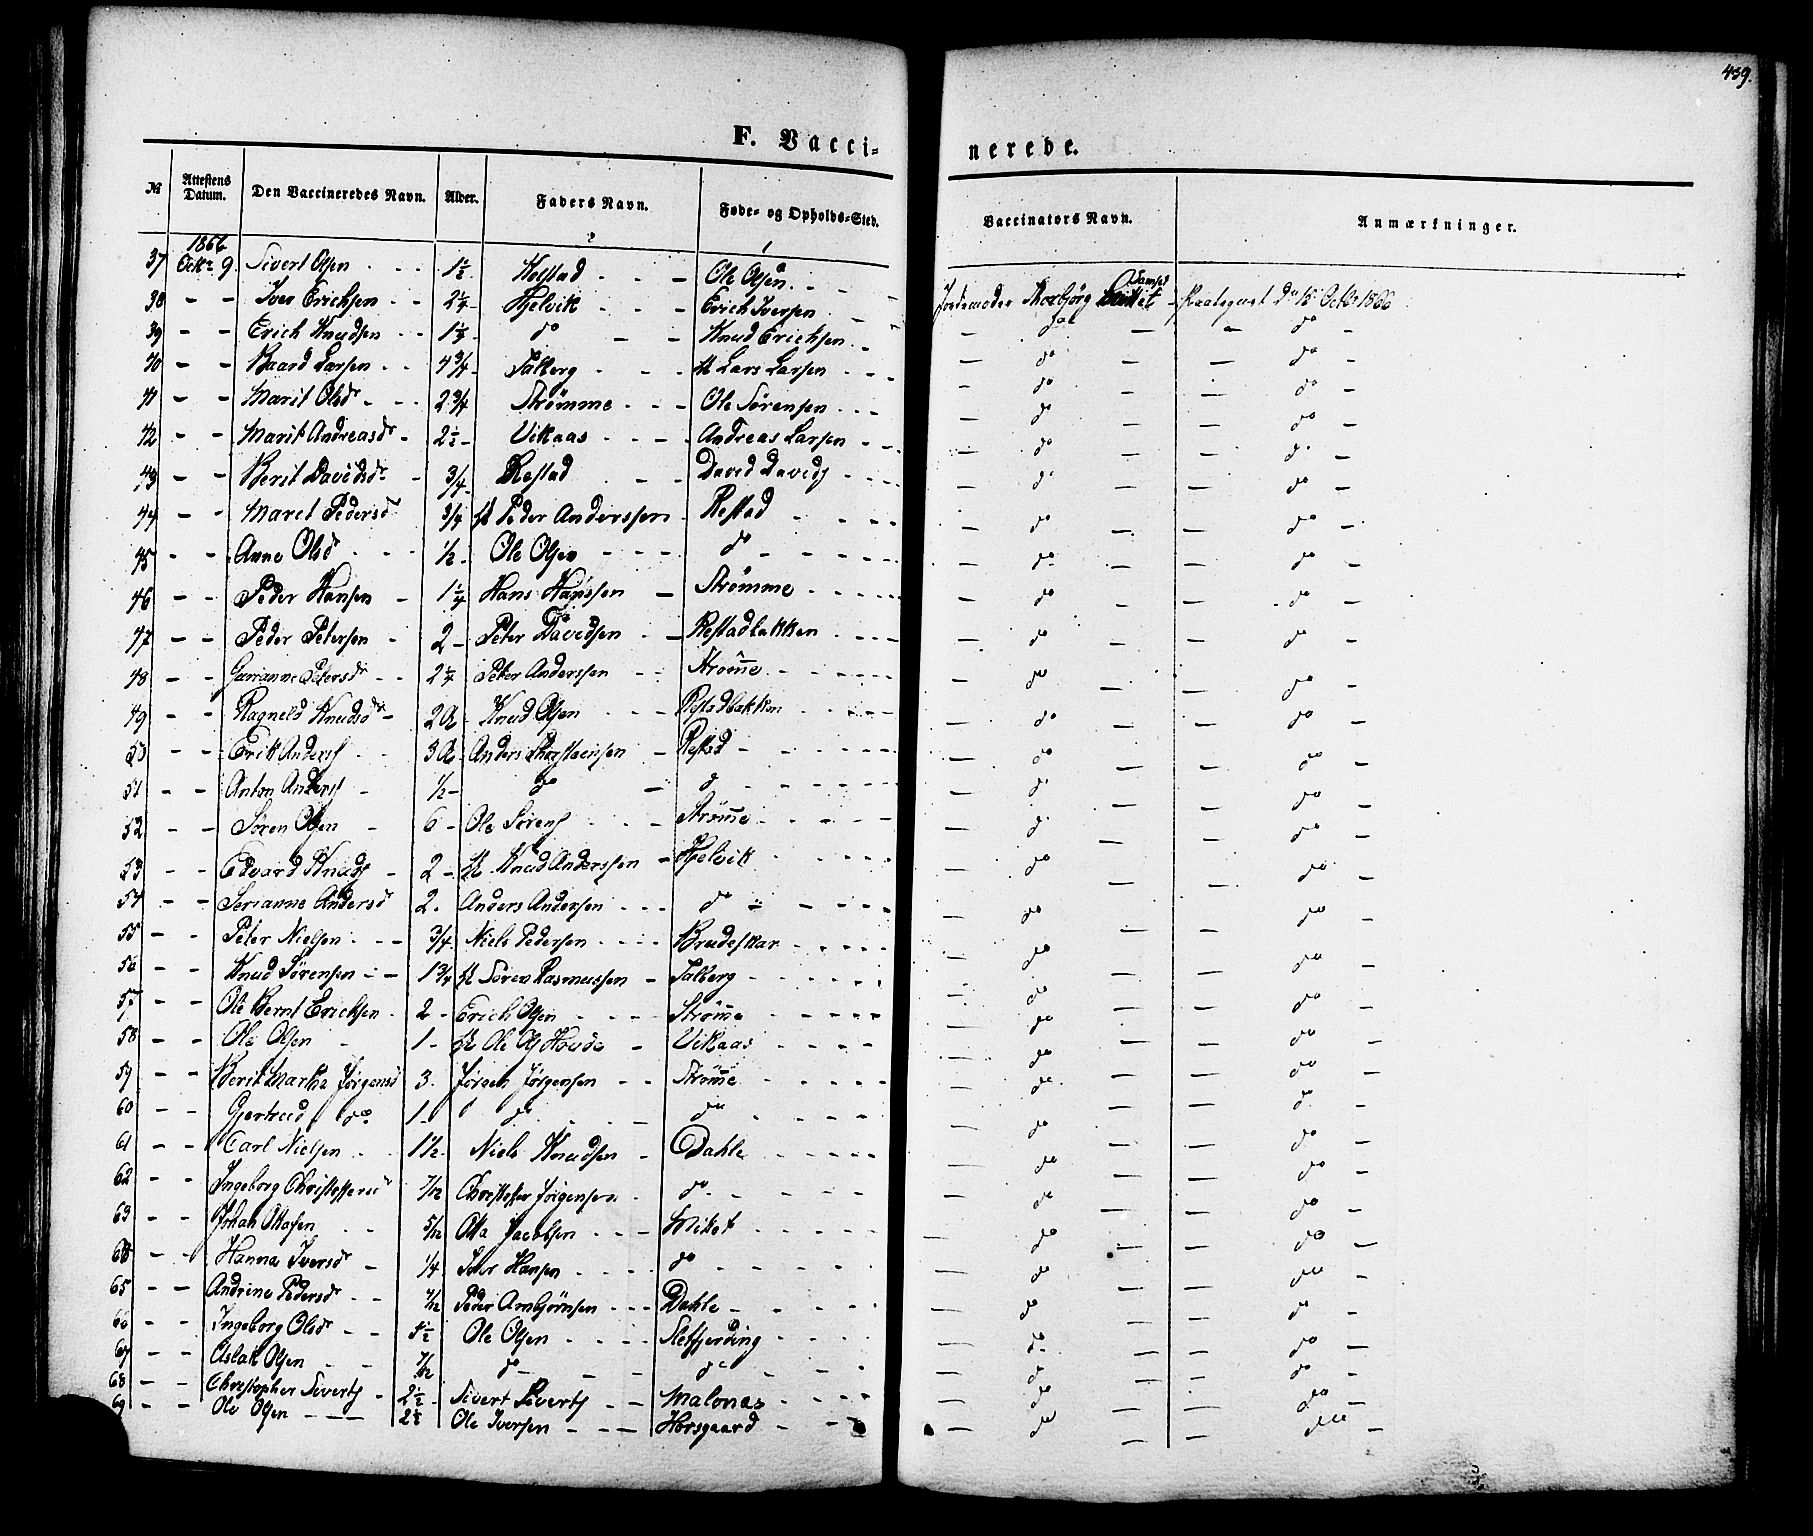 439.
F. Vacci- nerede.
№ Attestens Datum. Den Vaccineredes Navn. Alder. Faders Navn. Føde- og Opholds-Sted. Vaccinators Navn. Anmærkninger.
1866
37 Octr 9. Sivert Olsen - - - 1½ - Holstad - - - Ole Olsen - - - Jordemoder Thorbjørg
38 - - Iver Erichsen - - 2¼ - Hjelvik - - - Erich Iversen - - do - - do -
39 - - Erich Knudsen - - 1½ - do - - Knud Erichsen - - do - - do -
40 - - Baard Larsen - - 4¾ - Talberg - - - Lars Larsen - - - do - - do -
41 - - Marit Olsdr - - - 2¾ Strømme - - - Ole Sørensen - - - do - - do -
42 - - Marit Andreasdr - 2½ - Vikaas - - - Andreas Larsen - - do - - do -
43 - - Berit Davidsdr - 3/4 - Restad - - David Davids - - - do - - do -
44 - - Maret Pedersd 3/4 Peder Anderssen Restad - - - do - - do -
45 - - Anne Olsd - - - 1/2 - Ole Olsen - - - do - - - - do - - do -
46 - - Peder Hansen - 1¼ Hans Hanssen - Strømme - - - - do - - do -
47 - - Peder Petersen - 2 - Peter Davidsen - - Restadbakken - - - do - - do -
48 - - Petersdr - - 2¼ - Peter Anderssen - - Strømme - - - - do - - do -
49 - - Ragneld Knudsdr - 2 Knud Olsen - - - Restadbakken - - - do - - do -
53 - - Erik Anders - - 3 Anders Thorsteensen - Restad - - - - do - - do -
51 - - Anton Anders - 1/2 - do - do - - - - do - - do -
52 - - Søren Olsen - 6 - Ole Sørens - - - Strømme - - - - do - - do -
53 - - Edvard Knuds - 2 - Knud Anderssen - Hjelvik - - - - do - - do -
54 - - Serianne Andersd 2. Anders Andersen - - - do - - - - do - - do -
55 - - Peter Nielsen - - - 3/4 Niels Pedersen - - - Brudeskar - - - - do - - do -
56 - - Knud Sørensen - - 1¾ Søren Rasmussen - Talberg - - - - do - - do -
57 - - Ole Bernt Erichsen - 2 - Erich Olsen - - - - Strømme - - - - do - - do -
58 - - Ole Olsen - 1 - Ole Ols - Vikaas - - - - do - - do -
59 - - Berit Martha Jørgensd 3. Jørgen Jørgensen - - Strømme - - - - do - - do -
60 - - Gjertrud do 1 - do - - do - - - - do - - do -
61 - - Carl Nielsen - - 1½ - Niels Knudsen - Dahle - - - - do - - do -
62 - - Ingeborg 7/12 Jørgensen - do - - - - do - - do -
63 - - Johan - - 5/12 Otta Jacobsen - - - - - - - do - - do -
64 - - Hanna Iversdr - 1/4 Iver Hansen - - - - do - - - - do - - do -
65 - - Andrine Pedersdr - - 7/12 Peder Arnbjørnsen - - - Dahle - - - - do - - do -
66 - - Ingeborg Olsdr - - 5½ Ole Olsen - - - - Sletfjerding - - - - do - - do -
67 - - Aslak Olsen - - 7/12 do - - - do - - - do - - do -
68 - - Christopher Siverts - 2½ - Sivert Siverts - - Malonæs - - - - do - - do -
69 - - Ole Olsen - - - 2½ Ole Iversen - - - Horsgaard - - - do - - do -